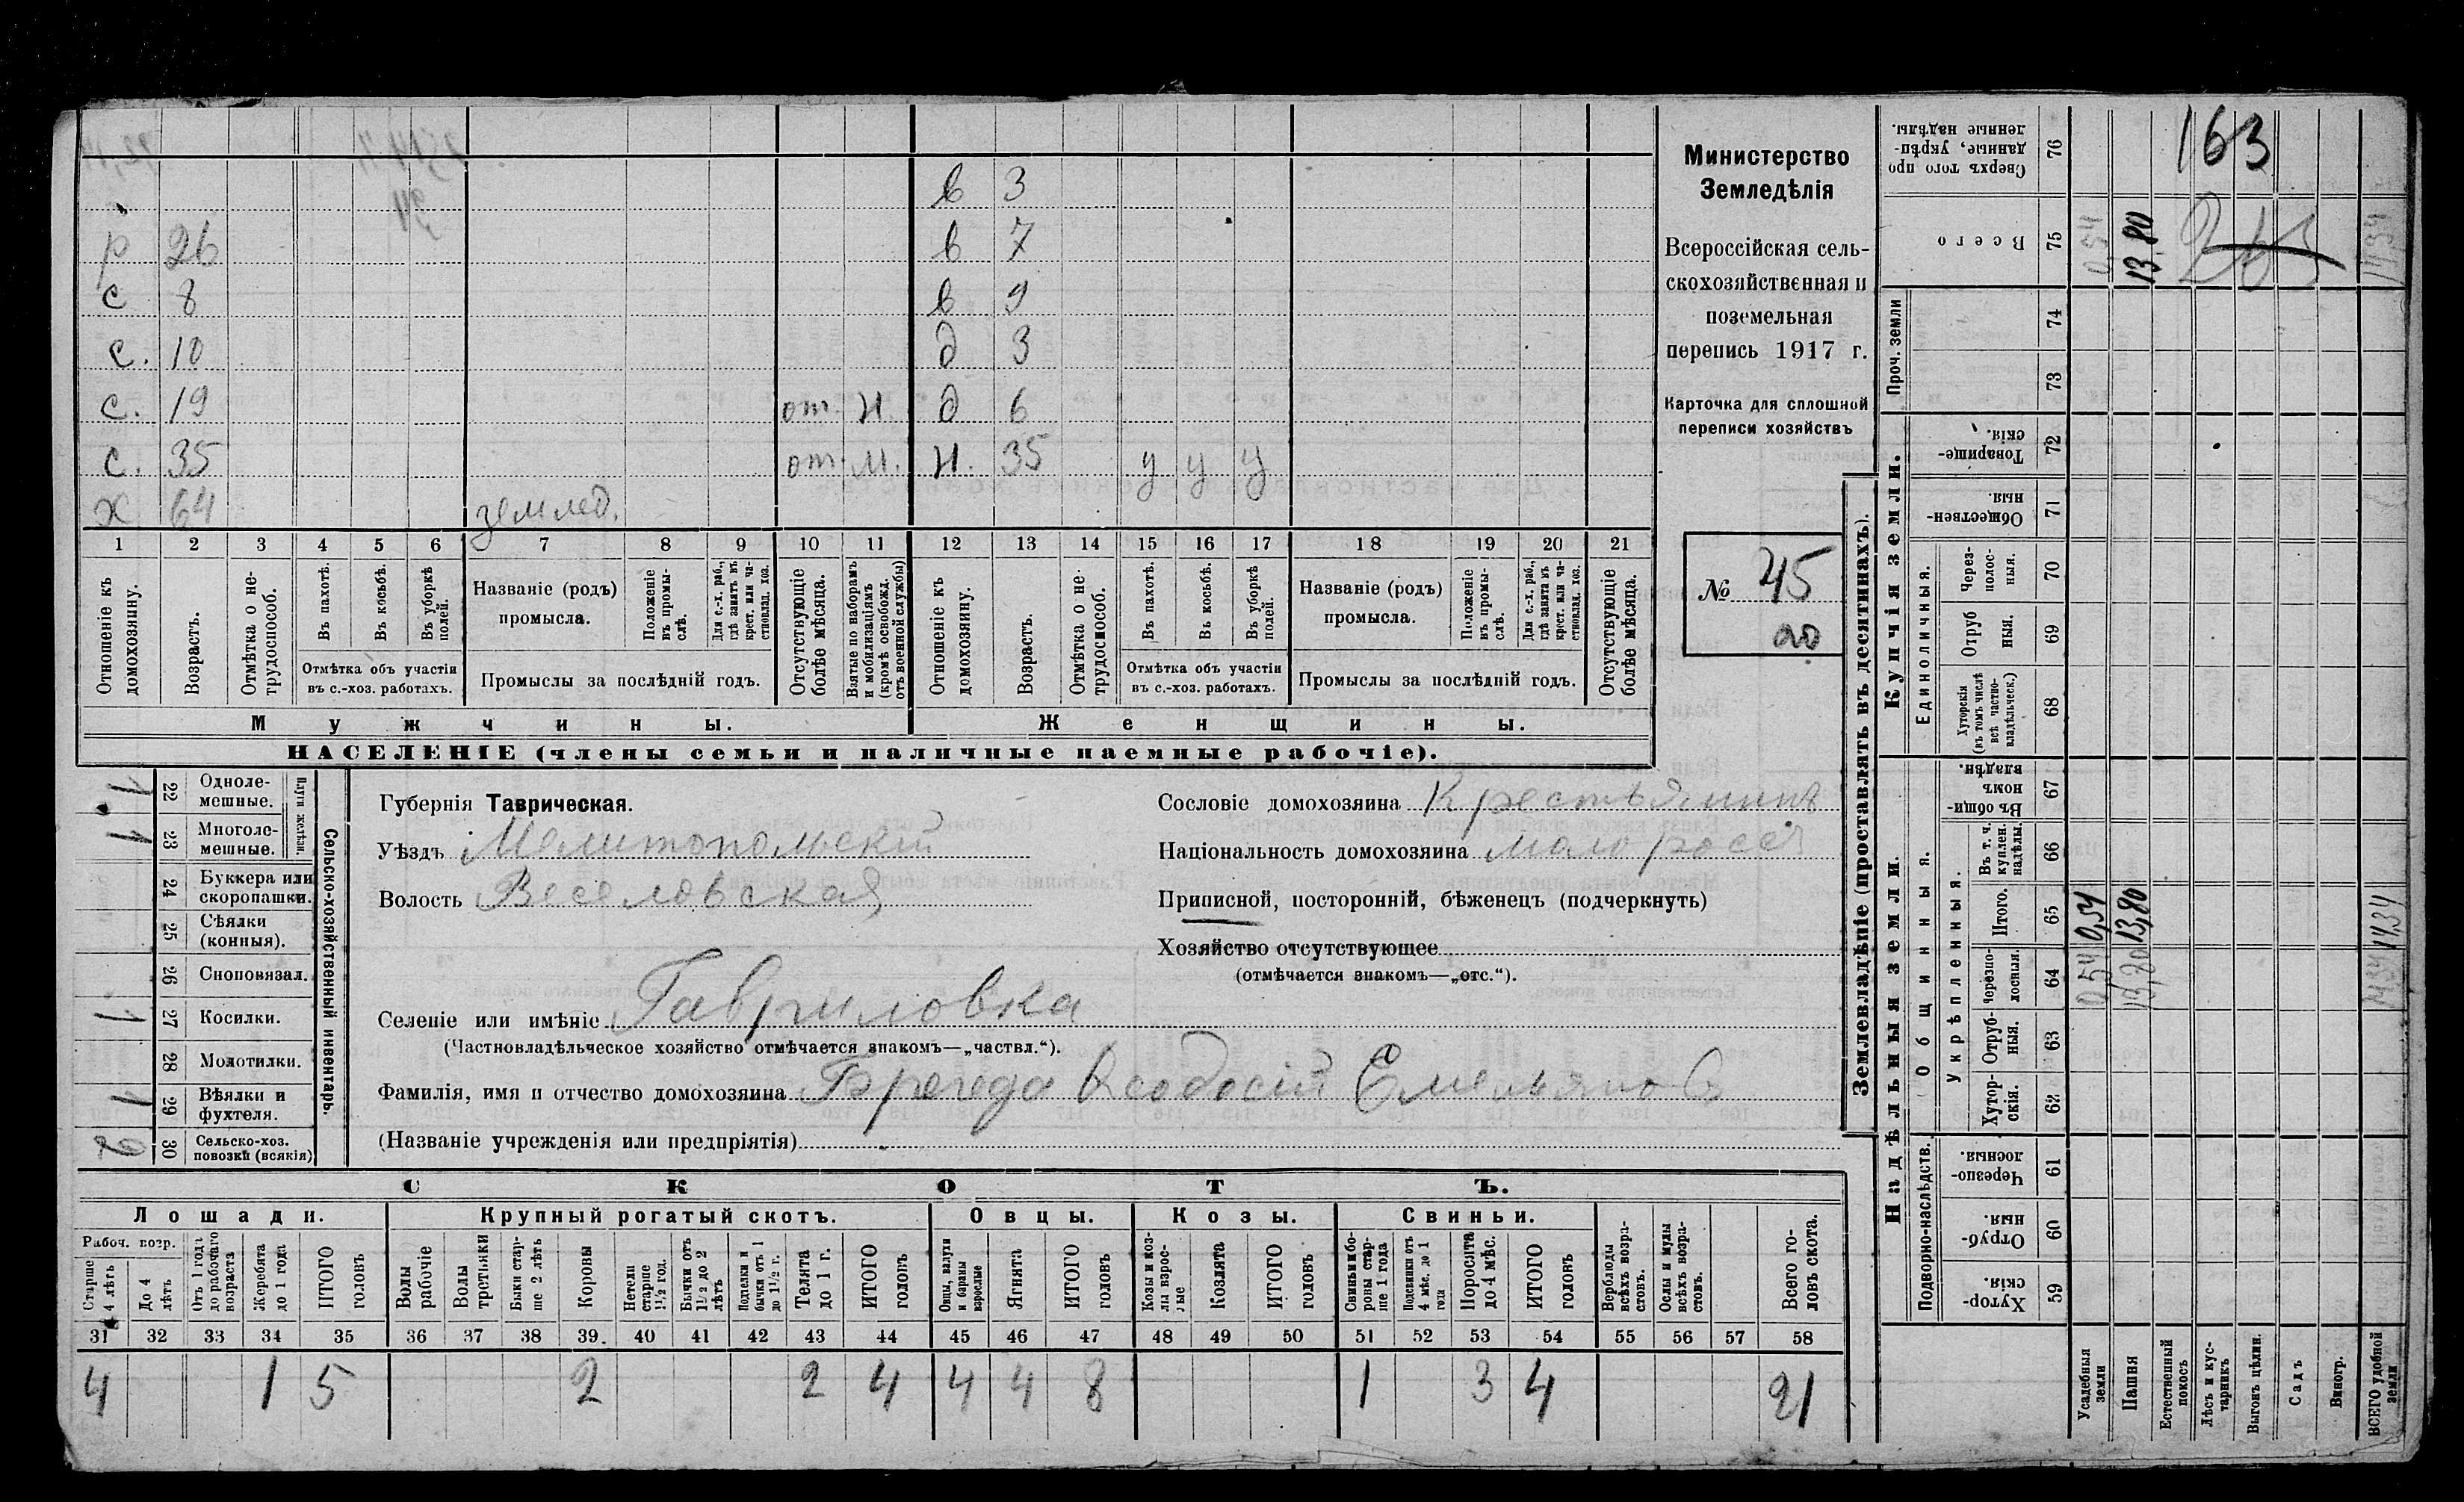 в 3
р 26 в 7
с 8 в 9
с. 10 д 3
с. 19 от. н. д 6
с. 35 от. м. н. 35 у у у
х 64 землед.
1 2 3 4 5 6 7 8 9 10 11 12 13 14 15 16 17 18 19 20 21
Отношеніе къ домохозяину.
Возрастъ.
Отмѣтка о нетрудоспособ.
Въ пахотѣ.
Въ косьбѣ.
Въ уборкѣ полей.
Отмѣтка объ участіи
въ с.-хоз. работахъ.
Названіе (родъ)
промысла.
Положеніе въ промыслѣ.
Для с.-х. раб., гдѣ занятъ въ крест. или частновлад. хоз.
Промыслы за послѣдній годъ.
Отсутствующіе болѣе мѣсяца.
Взятые по наборамъ и мобилизаціямъ (кромѣ освобожд. отъ военной службы)
Отношеніе къ домохозяину.
Возрастъ.
Отмѣтка о нетрудоспособ.
Въ пахотѣ.
Въ косьбѣ.
Въ уборкѣ полей.
Отмѣтка объ участіи
въ с.-хоз. работахъ.
Названіе (родъ)
промысла.
Положеніе въ промыслѣ.
Для с.-х. раб., гдѣ занятъ въ крест. или частновлад. хоз.
Промыслы за послѣдній годъ.
Отсутствующіе болѣе мѣсяца.
Мужчины. Женщины.
НАСЕЛЕНІЕ (члены семьи и наличные наемные рабочіе).
Министерство
Земледѣлія
Всероссійская сель-
скохозяйственная и
поземельная
перепись 1917 г.
Карточка для сплошной
переписи хозяйствъ
№ 45
20
1 22 Однолемешные.
1 23 Многолемешные.
Плуги желѣзн.
24 Буккера или скоропашки.
25 Сѣялки (конныя).
26 Сноповязал.
1 27 Косилки.
28 Молотилки.
1 29 Вѣялки и фухтеля.
2 30 Сельско-хоз. повозки (всякія)
Сельско-хозяйственный инвентарь.
Губернія Таврическая.
Уѣздъ Мелитопольскій
Волость Веселовская
Сословіе домохозяина Крестьянинъ
Національность домохозяина малоросс
Приписной, посторонній, бѣженец (подчеркнуть)
Хозяйство отсутствующее
(отмѣчается знакомъ—„отс.“).
Селеніе или имѣніе Гавриловка
(Частновладѣльческое хозяйство отмѣчается знакомъ—„частвл.“).
Фамилія, имя и отчество домохозяина Брегеда Ѳеодосій Емельянов
(Названіе учрежденія или предпріятія)
СКОТЪ.
Лошади. Крупный рогатый скотъ. Овцы. Козы. Свиньи.
Рабоч. возр.
Старше 4 лѣтъ
До 4 лѣтъ
Отъ 1 года до рабочаго возраста
Жеребята до 1 года
ИТОГО головъ
Волы рабочіе
Волы третьяки
Быки старше 2 лѣтъ
Коровы
Нетели старше 1½ год.
Бычки отъ 1½ до 2 лѣтъ
Подтелки и бычки отъ 1 до 1½ г.
Телята до 1 г.
ИТОГО головъ
Овцы, валухи и бараны взрослые
Ягнята
ИТОГО головъ
Козы и козлы взрослые
Козлята
ИТОГО головъ
Свиньи и боровы старше 1 года
Подсвинки отъ 4 мѣс. до 1 года
Поросята до 4 мѣс.
ИТОГО головъ
Верблюды всѣхъ возрастовъ.
Ослы и мулы всѣхъ возрастовъ.
Всего головъ скота.
31 32 33 34 35 36 37 38 39. 40 41 42 43 44 45 46 47 48 49 50 51 52 53 54 55 56 57 58
4 1 5 2 2 4 4 4 8 1 3 4 21
Землевладѣніе (проставлять въ десятинахъ).
Надѣльныя земли. Купчія земли. Проч. земли
Подворно-наслѣдств. Общинныя. Единоличныя.
Укрѣпленныя.
59 Хуторскія.
60 Отрубныя
61 Черезполосныя.
62 Хуторскія.
63 Отрубныя.
64 Черезполосныя. 0,54 13,80 14,34
65 Итого. 0,54 13,80 14,34
66 Въ т. ч. куплен. надѣлы.
67 Въ общинномъ владѣн.
68 Хуторскія (въ томъ числѣ всѣ частновладѣльческ.)
69 Отрубныя.
70 Черезполосныя.
71 Общественныя
72 Товарищескія.
73
74
75 Всего 0,54 13,80 14,34
76 Сверхъ того проданные, укрѣпленные надѣлы.
163
Усадебныя земли
Пашня
Естественный покосъ
Лѣсъ и кустарникъ
Выгонъ цѣлин.
Садъ
Виногр.
ВСЕГО удобной земли